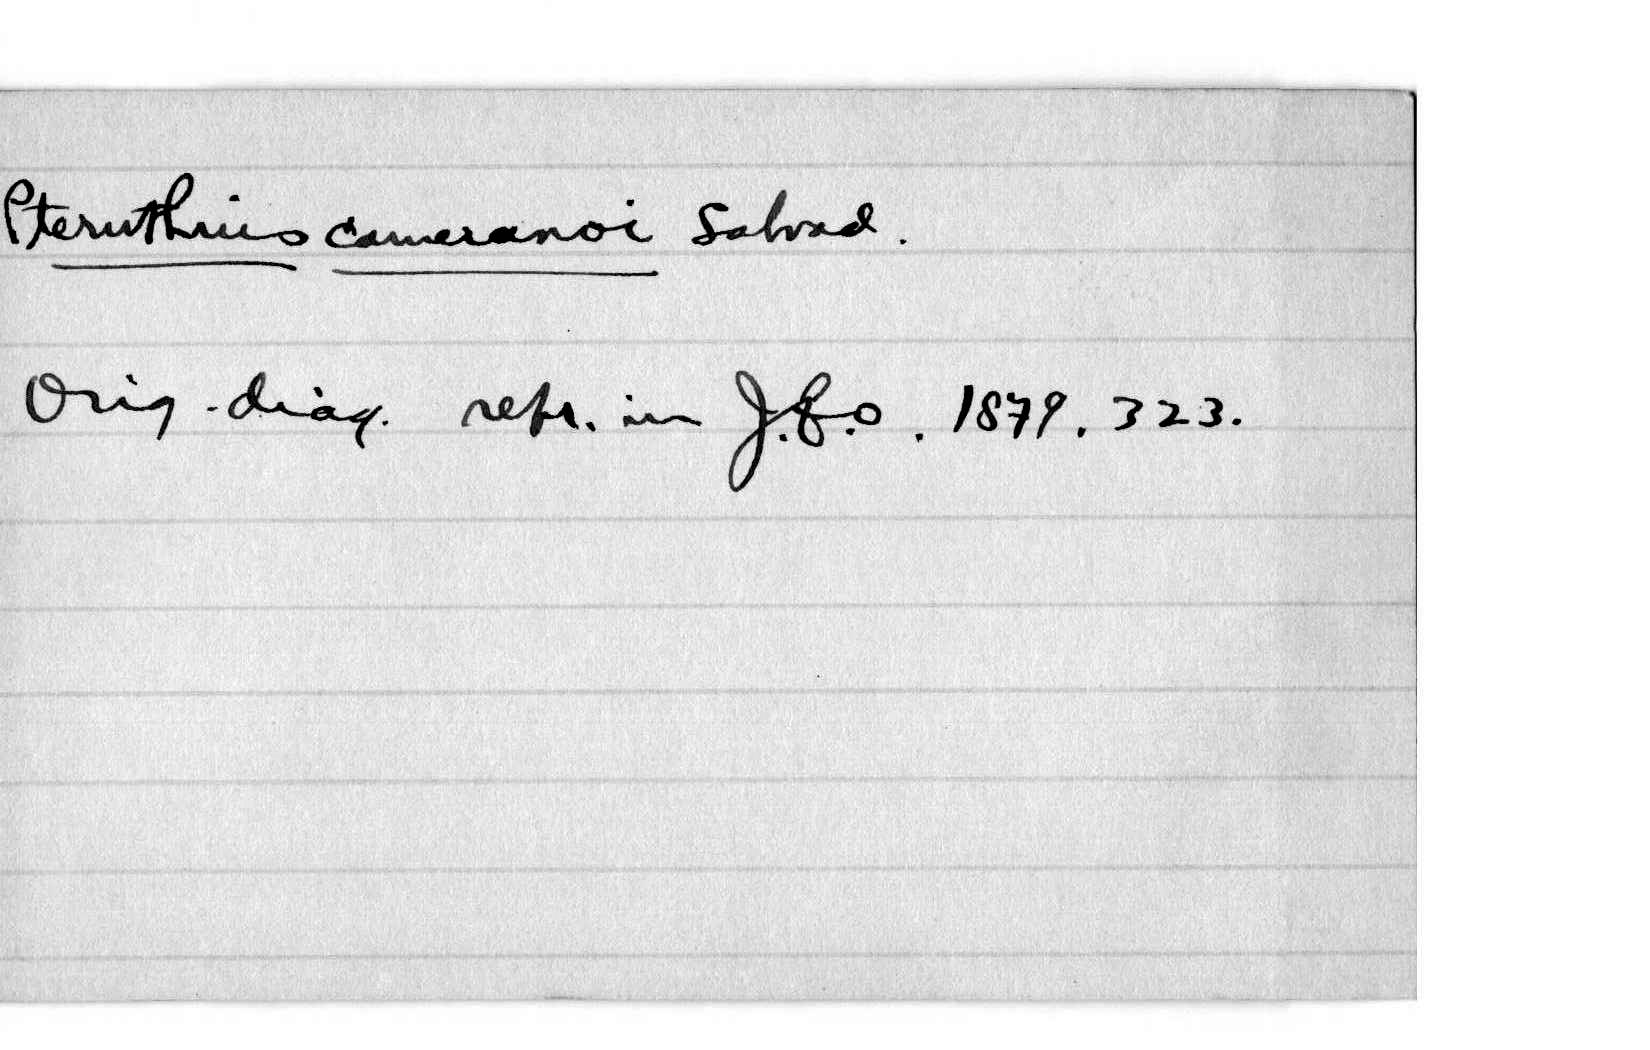 Pteruthius cameranoi Salvad.
Orig. diag. repr. in J.f.O. 1879. 323.